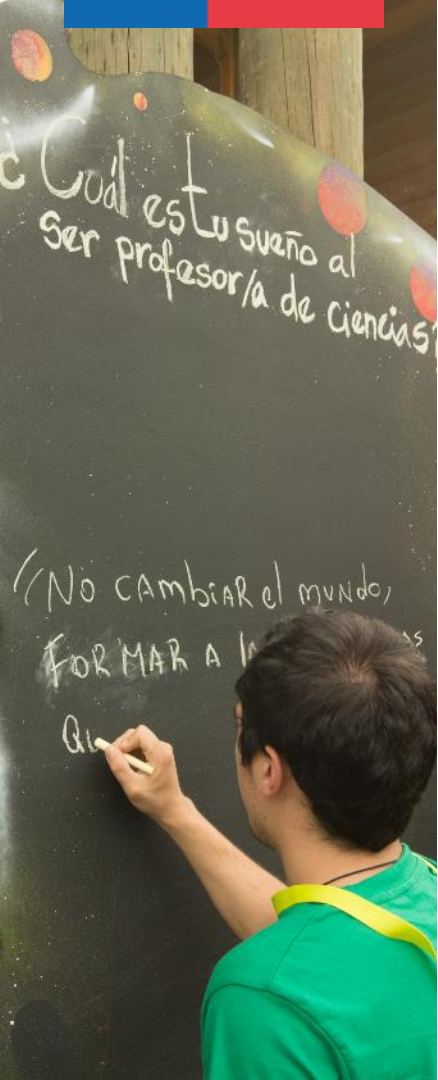 ¿Cuál es tu sueño al
ser profesor/a de ciencias?
"No cambiaR el mundo,
FORMAR A